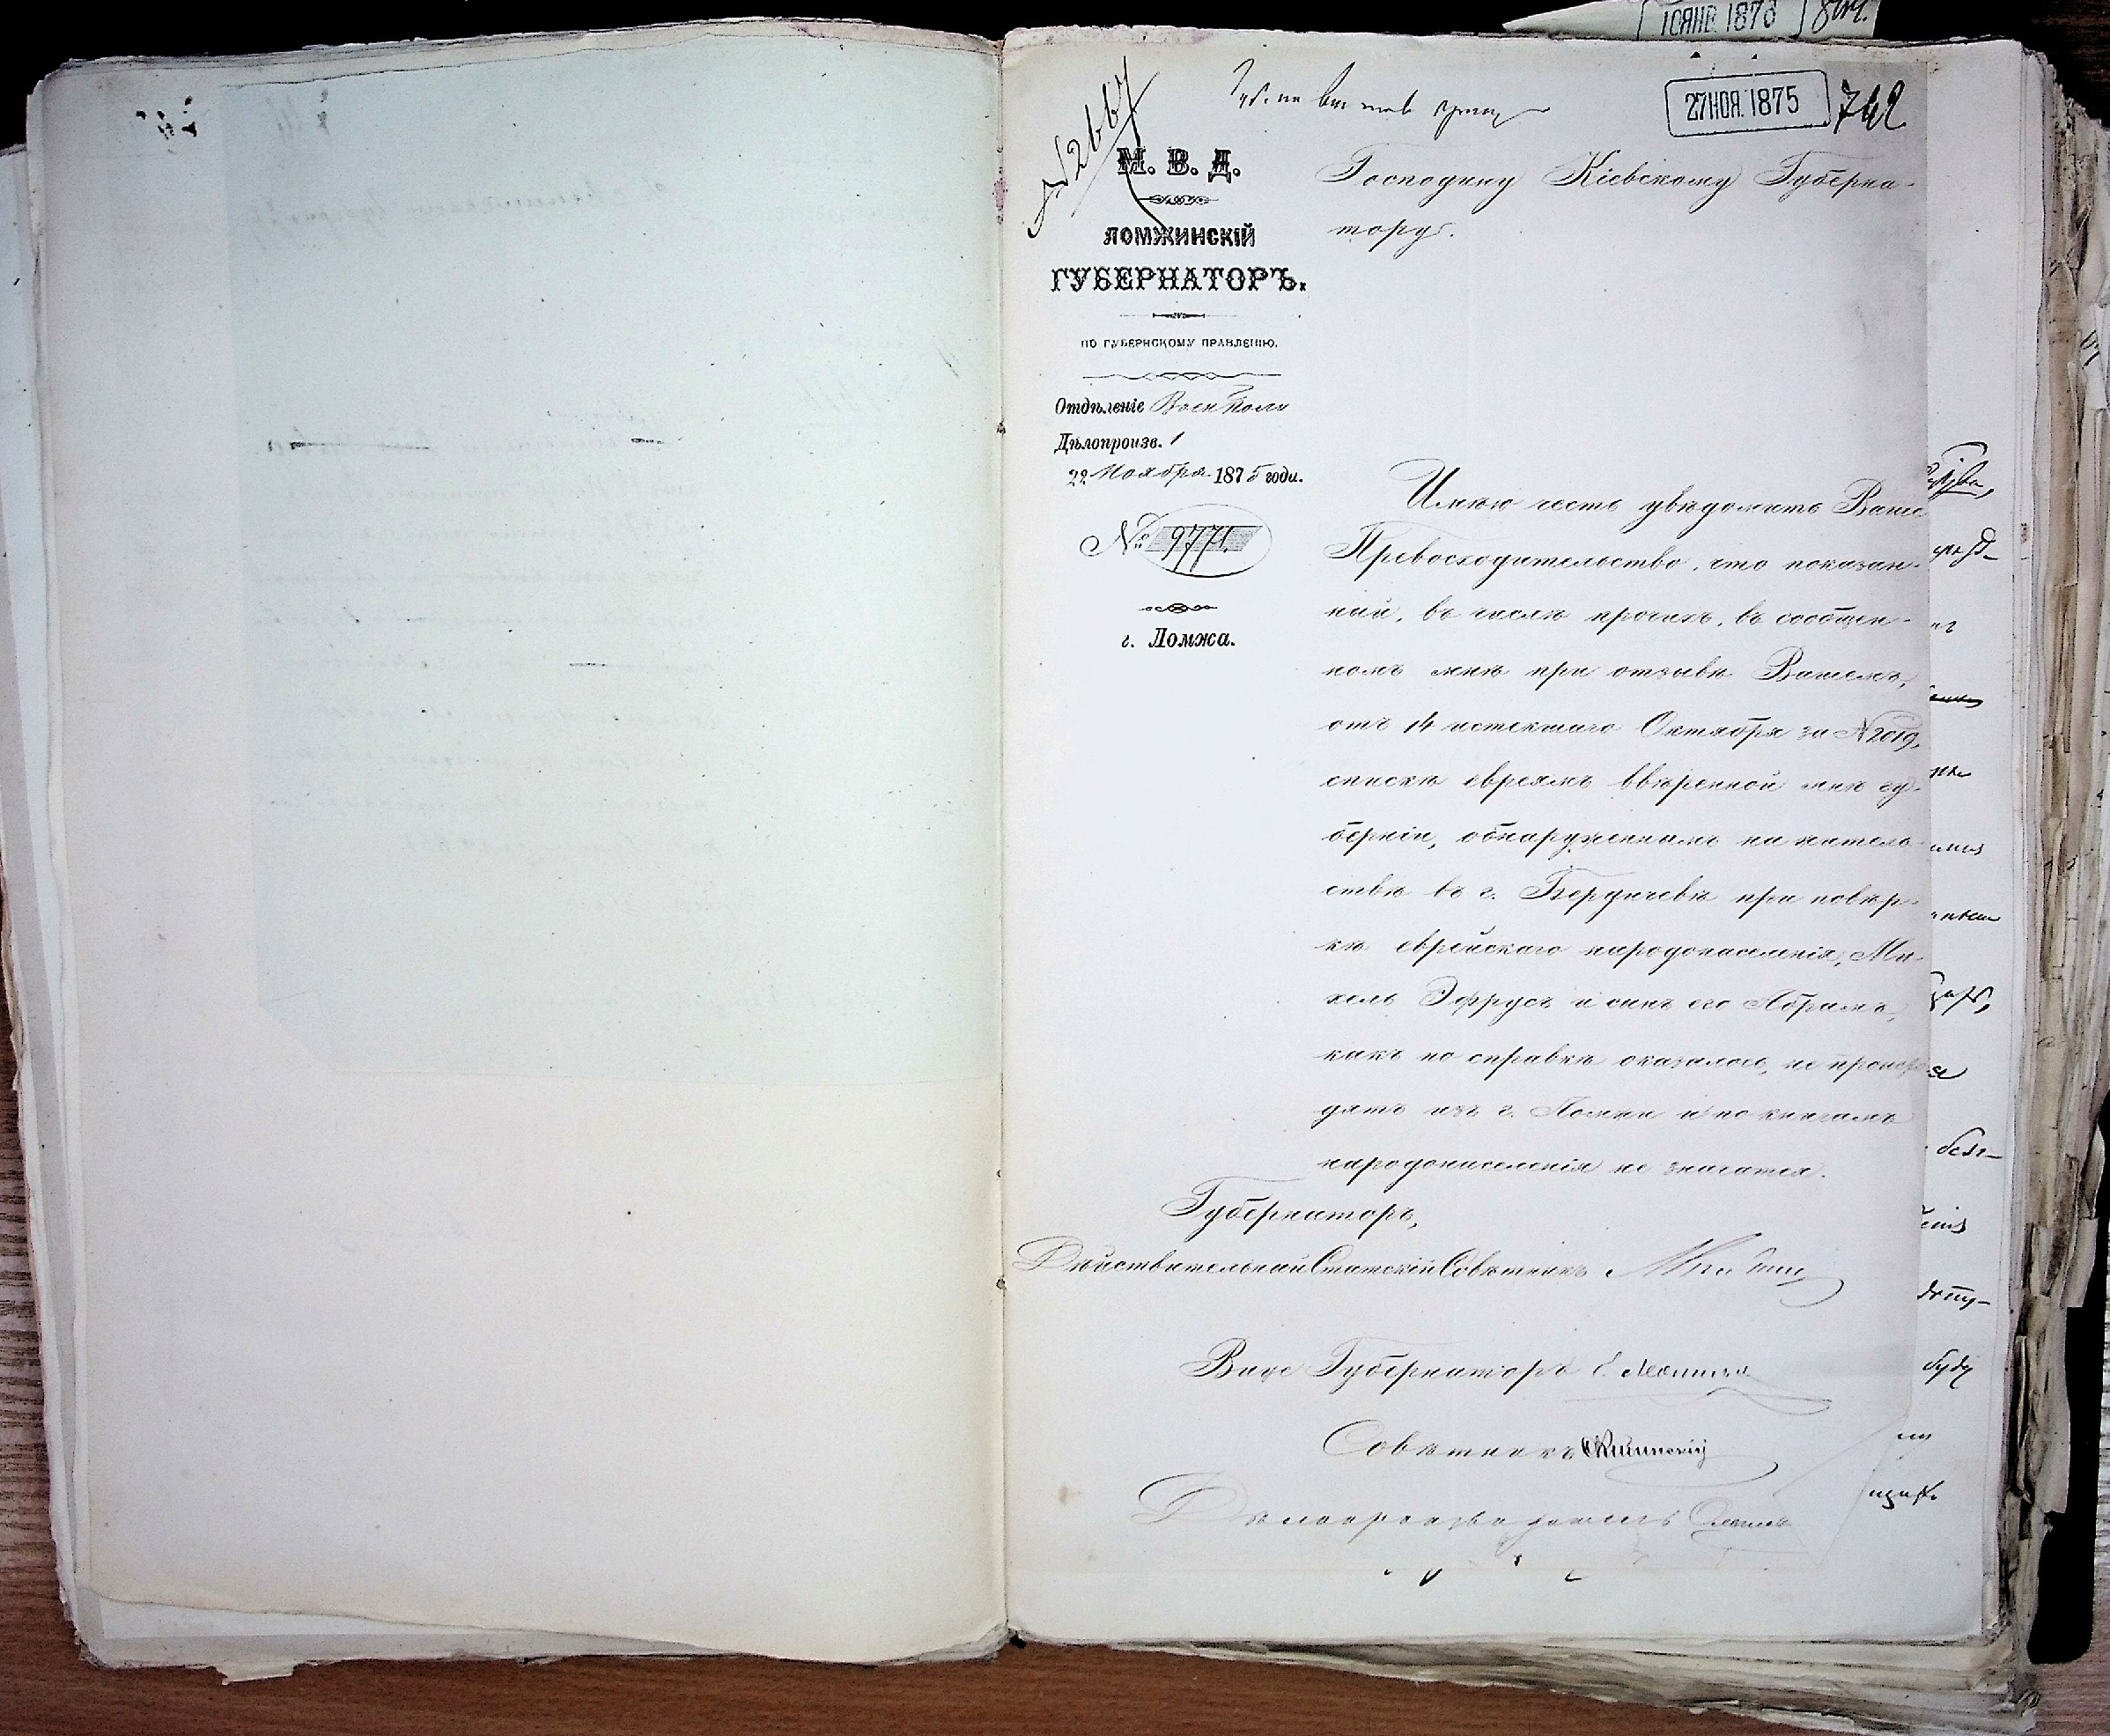 10ЯНВ 1876
27НОЯ. 1875
742
№ 2667
М. В. Д.
ЛОМЖИНСКІЙ
ГУБЕРНАТОРЪ.
ПО ГУБЕРНСКОМУ ПРАВЛЕНІЮ.
Отдѣленіе Воен Поли
Дѣлопроизв. 1
22 Ноября 1875 года.
№ 9771.
г. Ломжа.
Господину Кіевскому Губерна-
тору.
Имѣю честь увѣдомить Ваше
Превосходительство, что показан-
ный, въ числѣ прочихъ, въ сообщен-
номъ мнѣ при отзывѣ Вашемъ,
отъ 14 истекшаго Октября за № 2019,
спискѣ евреямъ ввѣренной мнѣ гу-
берніи, обнаруженнымъ на житель-
ствѣ въ г. Бердичевѣ при повѣр-
кѣ еврейскаго народонаселенія, Ми-
хель Эфрусъ и сынъ его Абрамъ,
какъ по справкѣ оказалось, не происхо-
дятъ изъ г. Ломжи и по книгамъ
народонаселенія не значатся.
Губернаторъ,
Дѣйствительный Статскій Совѣтникъ
Вице Губернаторъ
Совѣтникъ
Дѣлопроизводитель